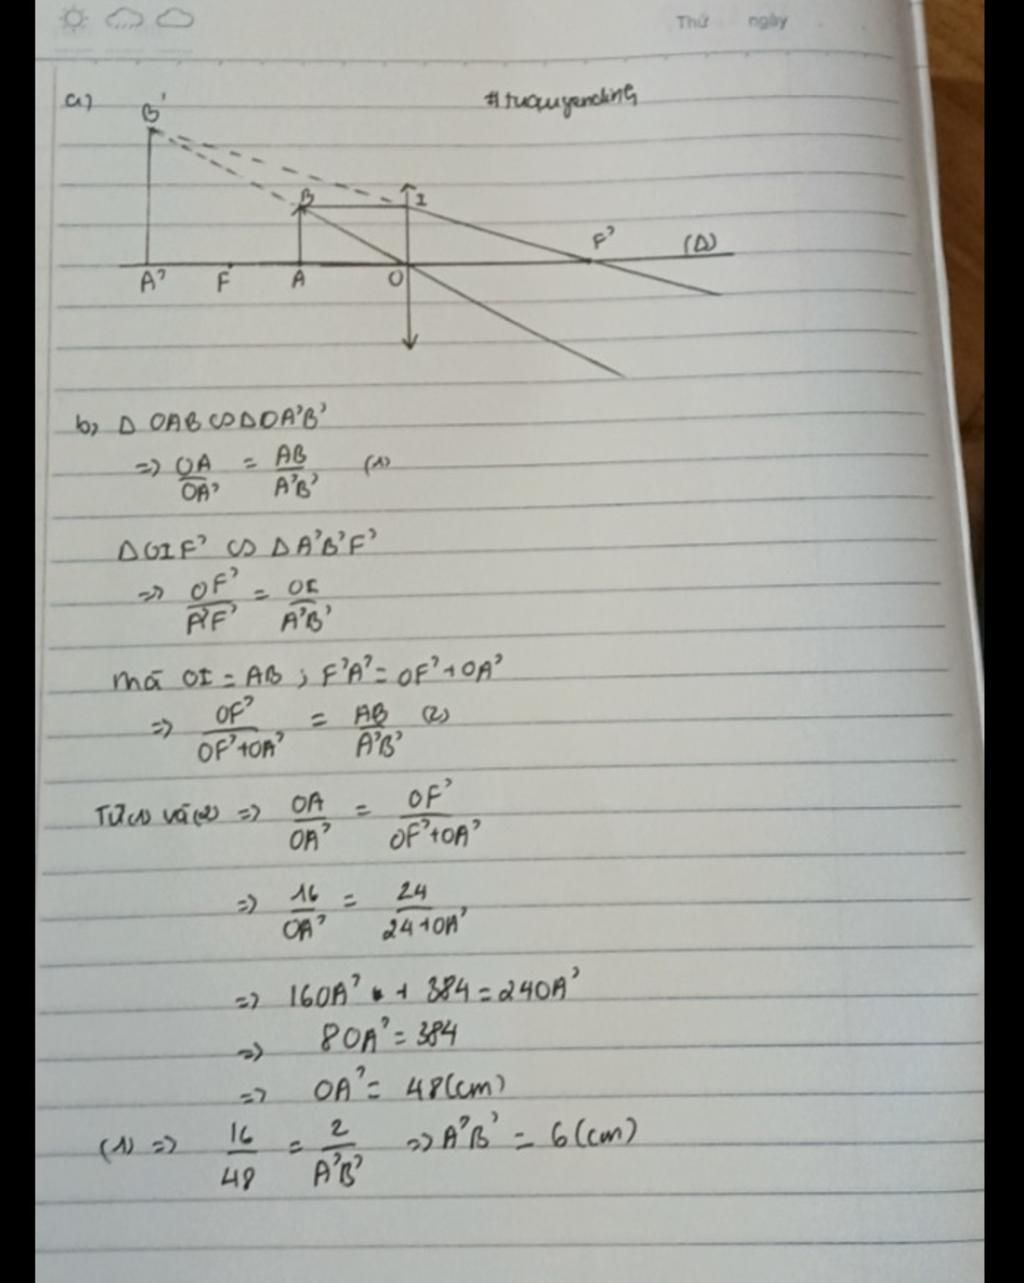 Thứ ngày
a)
#tuquyendinh
B'
B I
F' (Δ)
A' F A O
b) Δ OAB ∽ Δ OA'B'
=> OA/OA' = AB/A'B' (1)
ΔOIF' ∽ ΔA'B'F'
=> OF'/A'F' = OI/A'B'
mà OI = AB ; F'A' = OF' + OA'
=> OF'/OF'+OA' = AB/A'B' (2)
Từ (1) và (2) => OA/OA' = OF'/OF'+OA'
=> 16/OA' = 24/24+OA'
=> 16OA' + 384 = 24OA'
=> 8OA' = 384
=> OA' = 48(cm)
(1) => 16/48 = 2/A'B' => A'B' = 6(cm)